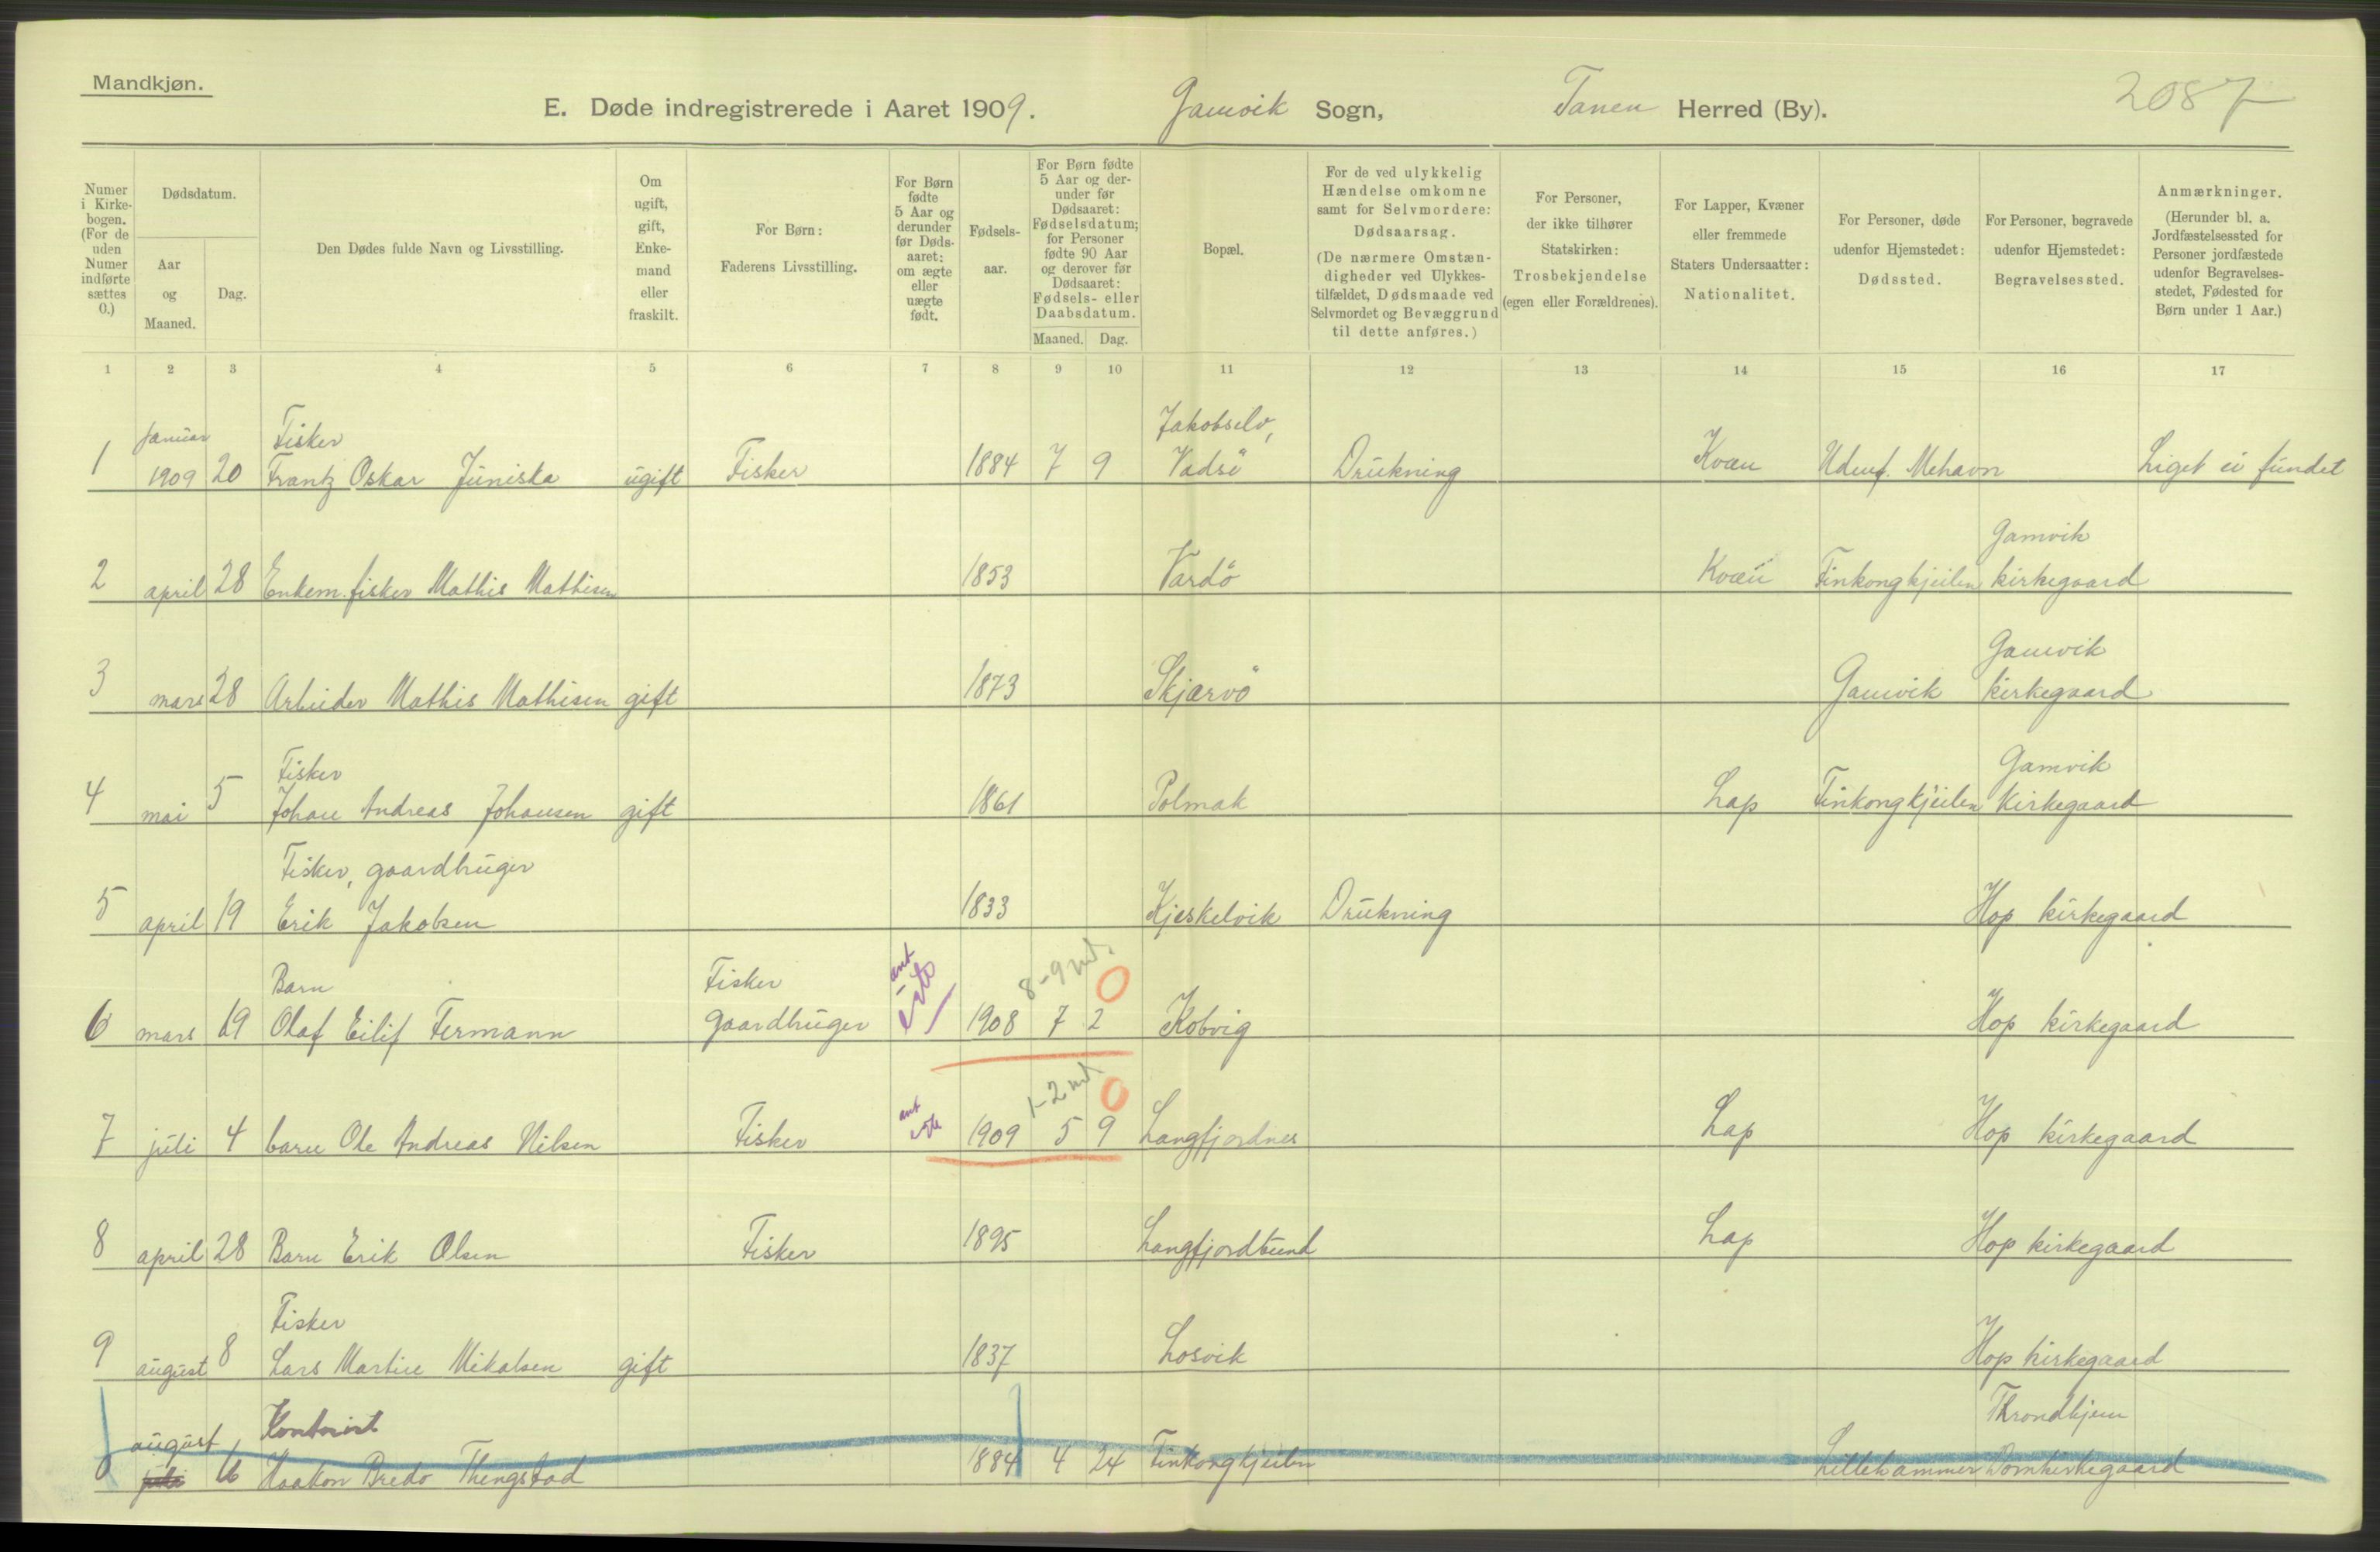 Mandkjøn.
E. Døde indregistrerede i Aaret 1909. Gamvik Sogn, Tanen Herred (By). 2087
Numer i Kirkebogen. (For de uden Numer indførte sættes 0.)
Dødsdatum.
Aar og Maaned.
Dag.
Den Dødes fulde Navn og Livsstilling.
Om ugift, gift, Enkemand eller fraskilt.
For Børn: Faderens Livsstilling.
For Børn fødte 5 Aar og derunder før Dødsaaret: om ægte eller uægte født.
Fødselsaar.
For Børn fødte 5 Aar og derunder før Dødsaaret: Fødselsdatum; for Personer fødte 90 Aar og derover før Dødsaaret: Fødsels- eller Daabsdatum.
Maaned. Dag.
Bopæl.
For de ved ulykkelig Hændelse omkomne samt for Selvmordere: Dødsaarsag. (De nærmere Omstændigheder ved Ulykkestilfældet, Dødsmaade ved Selvmordet og Bevæggrund til dette anføres.)
For Personer, der ikke tilhører Statskirken: Trosbekjendelse (egen eller Forældrenes).
For Lapper, Kvæner eller fremmede Staters Undersaatter: Nationalitet.
For Personer, døde udenfor Hjemstedet: Dødssted.
For Personer, begravede udenfor Hjemstedet: Begravelsessted.
Anmærkninger. (Herunder bl. a. Jordfæstelsessted for Personer jordfæstede udenfor Begravelsesstedet, Fødested for Børn under 1 Aar.)
1 2 3 4 5 6 7 8 9 10 11 12 13 14 15 16 17
Januar Fisker Jakobselv,
1 1909 20 Frantz Oskar Juniska ugift Fisker 1884 7 9 Vadsö Drukning Kvæn Udenf. Mehavn Liget ei fundet
Gamvik
2 april 28 Enkem. fisker Mathis Mathisen 1853 Vardö Kvæn Finkongkjeilen kirkegaard
Gamvik
3 mars 28 Arbeider Mathis Mathisen gift 1873 Skjærvö Gamvik kirkegaard
Fisker Gamvik
4 mai 5 Johan Andreas Johansen gift 1861 Polmak Lap Finkongkjeilen Kirkegaard
Fisker, gaardbruger
5 april 19 Erik Jakobsen 1833 Kjeskelvik Drukning Hop kirkegaard
Barn Fisker ant 8-9 md. 0
6 mars 19 Olaf Eilif Fermann gaardbruger ekte 1908 7 2 Kobvig Hop kirkegaard
ant 1-2 md. 0
7 juli 4 barn Ole Andreas Nilsen Fisker ekte 1909 5 9 Langfjordnes Lap Hop kirkegaard
8 april 28 Barn Erik Olsen Fisker 1895 Langfjordbund Lap Hop kirkegaard
Fisker
9 august 8 Lars Martin Mikalsen gift 1837 Losvik Hop kirkegaard
august Kontorist Throndhjem
0 juli 16 Haakon Bredo Thengstad 1884 4 24 Finkongkjeilen Lillehammer Domkirkegaard